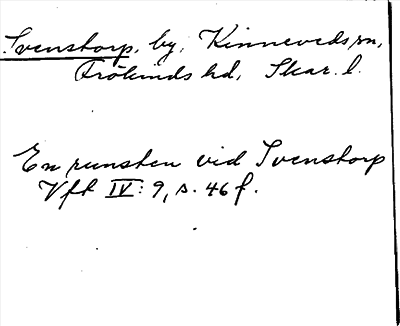 Svenstorp, by, Kinneveds sn,
Frökinds hd, Skar. l.
En runsten vid Svenstorp
Vft IV: 9, s. 46 f.